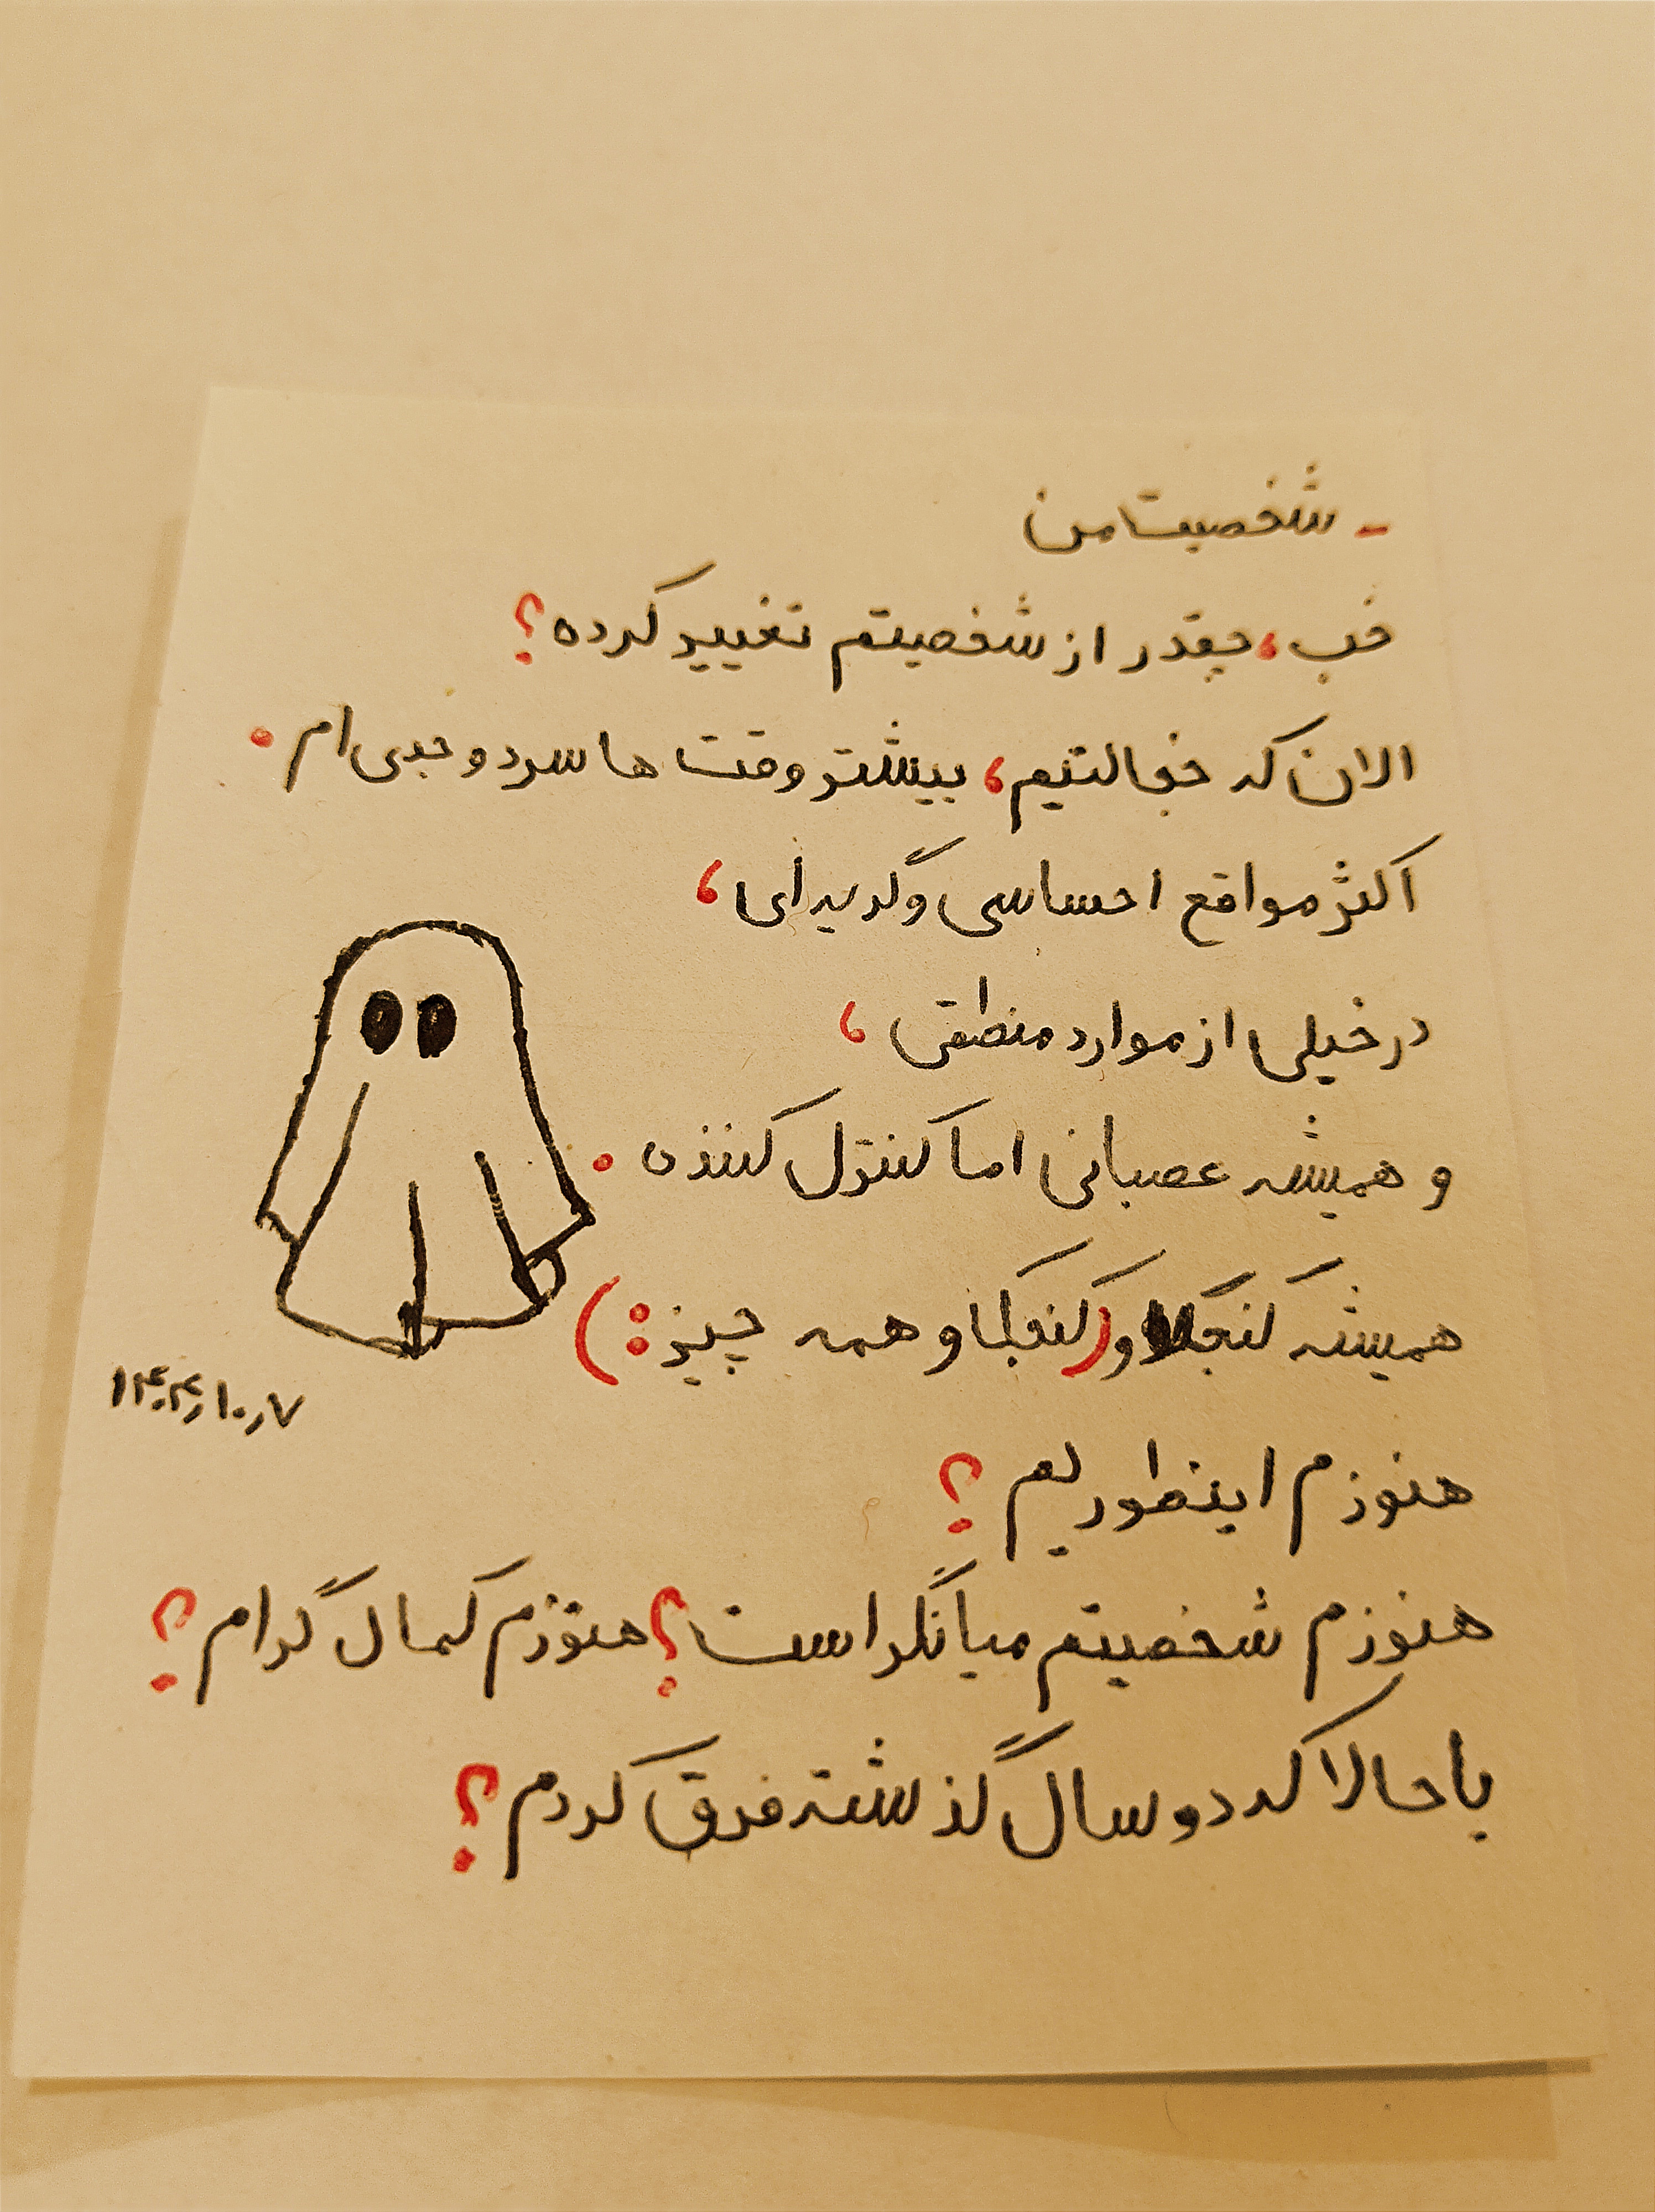 - شخصیت من
خب، چقدر از شخصیتم تغییر کرده؟
الان که خجالتیم، بیشتر وقت ها سرد و جدی ام.
اکثر مواقع احساسی و گریه ای،
در خیلی از موارد منطقی،
و همیشه عصبانی اما کنترل کننده.
همیشه کنجکاو و (کنجکاو همه چیز:)
۱۴۰۴٫۱۰٫۷
هنوزم اینطوریم؟
هنوزم شخصیتم میانگرا است؟ هنوزم کمال گرام؟
یا حالا که دو سال گذشته فرق کردم؟